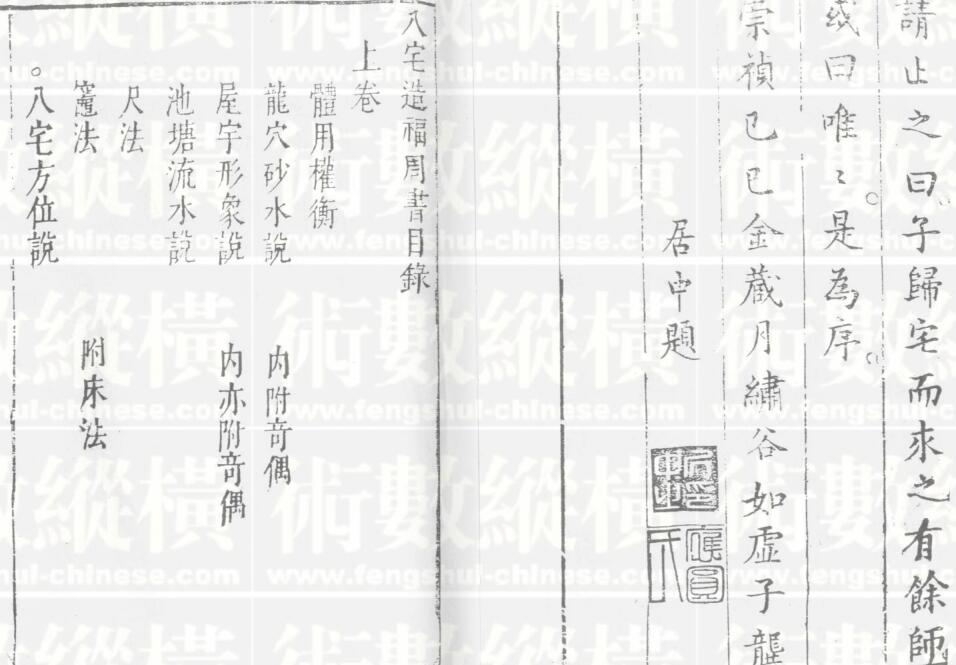 請止之曰子歸宅而求之有餘師
或曰唯〻是為序
崇禎己巳金蔵月繡谷如虛子龔
居中題
八宅造福周書目錄
上卷
體用權衡
龍穴砂水說 內附奇偶
屋宇形象說 內亦附奇偶
池塘流水說
尺法
竈法 附床法
八宅方位說
術數縱橫
www.fengshui-chinese.com